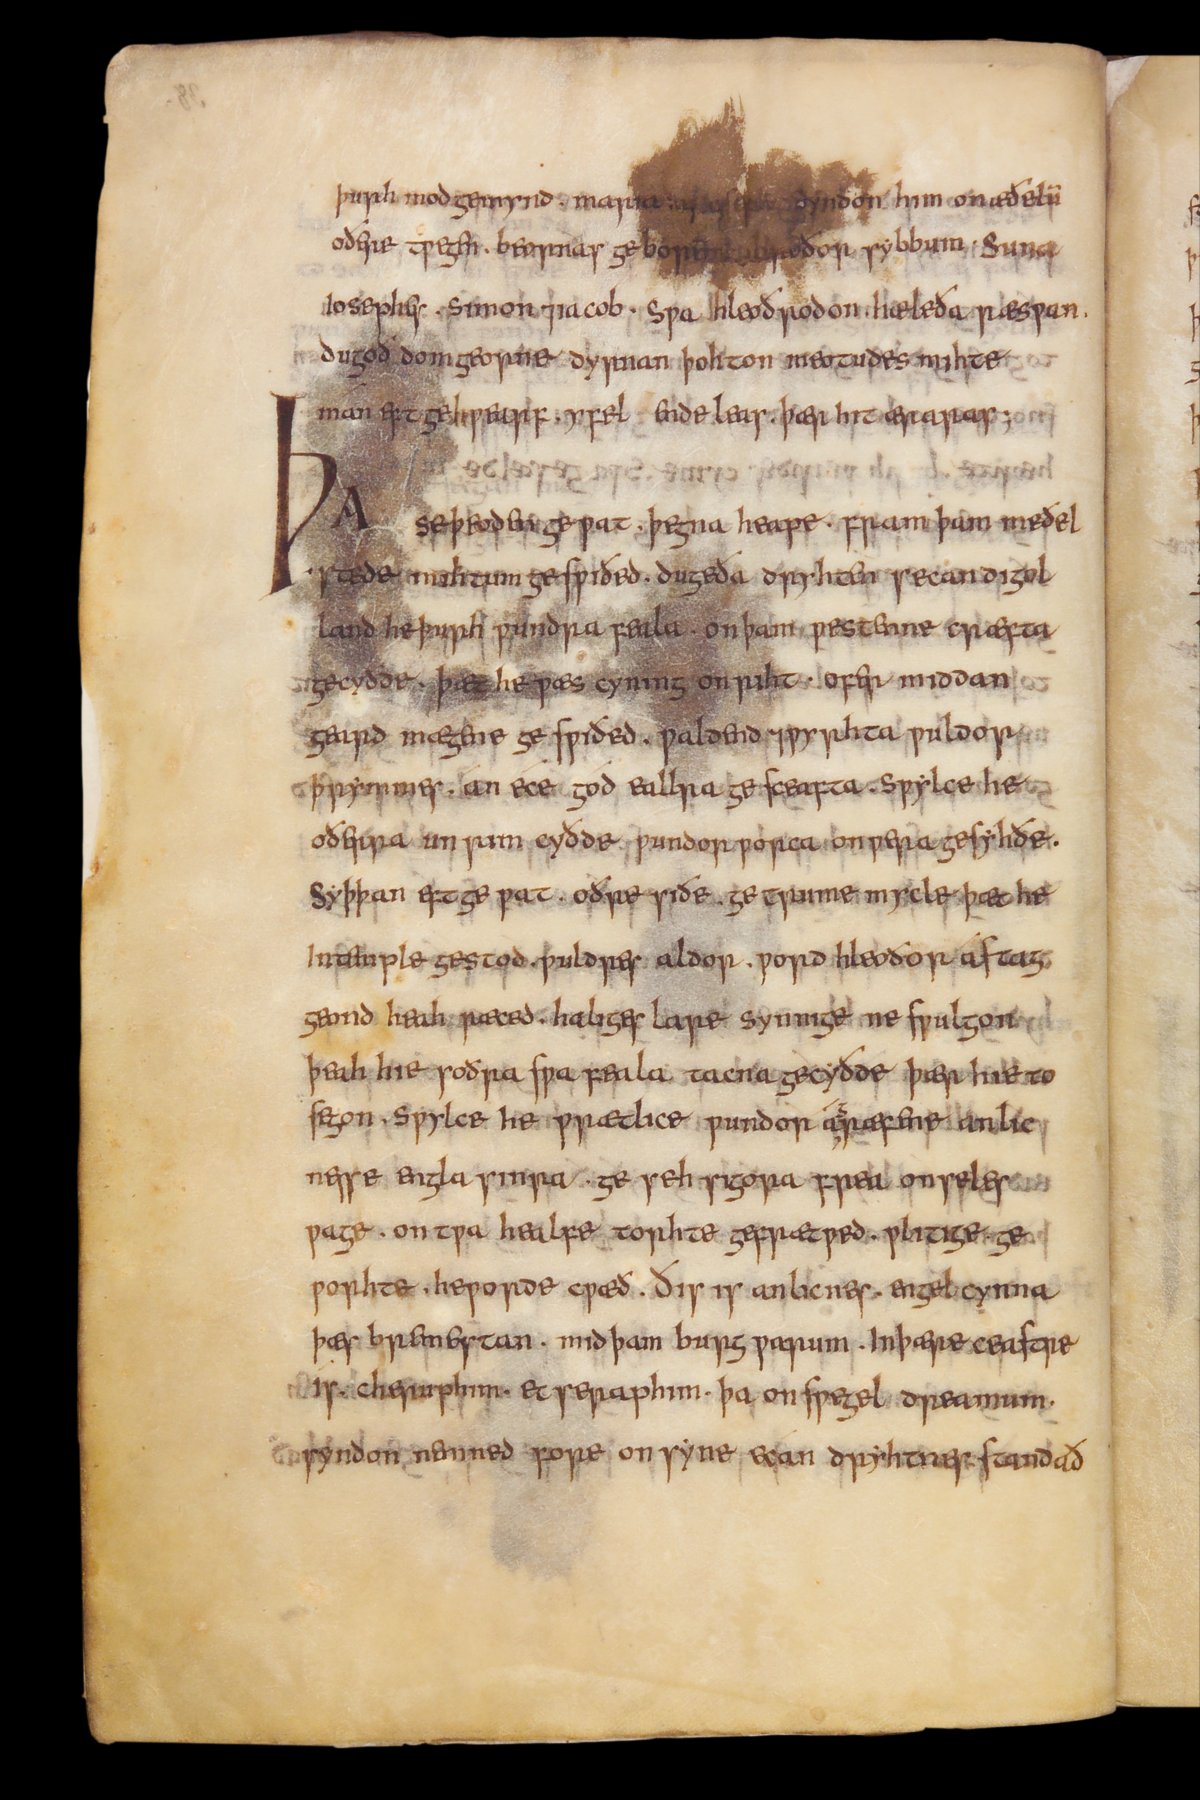 þurh modgemynd . maria ioseph syndon him on æðelū
oðere tƿegen . beornas geborene broðor sybbum . Suna
iosephes . Simon ⁊ iacob . Sƿa hleoðrodon hæleða ræsƿan .
dugoð domgeorne dyrnan þohton meotudes mihte
man eft gehƿearf . yfel endeleas . þær hit ær aras ;
ÞA se þeoden geƿat . þegna heape . fram þam meðel
stede mihtum gesƿiðed . dugeða dryhten secan digol
land he þurh ƿundra feala . on þam ƿestenne cræfta
gecyðde . þæt he ƿæs cyning on riht . ofer middan
geard mægene gesƿiðed . ƿaldend ⁊ ƿyrhta ƿuldor
þrymmes . an ece god eallra gesceafta . Sƿylce he
oðerra unrim cyðde ƿundor ƿorca on ƿera gesyhðe .
Syþþan eft geƿat . oðre siðe . getrume mycle þæt he
In temple gestod . ƿuldres aldor . ƿord hleoðor astag
geond heah ræced . haliges lare synnige ne sƿulgon
þeah he soðra sƿa feala tacna gecyðde þær hie to
segon . Sƿylce he ƿrætlice ƿundor agræfene anlic
nesse engla sinra . geseh sigora frea on seles
ƿage . on tƿa healfe torhte gefrætƿed . ƿlitige ge
ƿorhte . he ƿorde cƿæð . Ðis is anlicnes . engel cynna
þæs bremestan . mid þam burg ƿarum . In þære ceastre
is . cheruphim . et seraphim . þa on sƿegel dreamum .
syndon nemned fore onsyne ecan dryhtnes standað